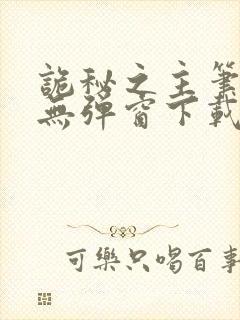 詭秘之主筆
無彈窗下載
可樂只喝百事